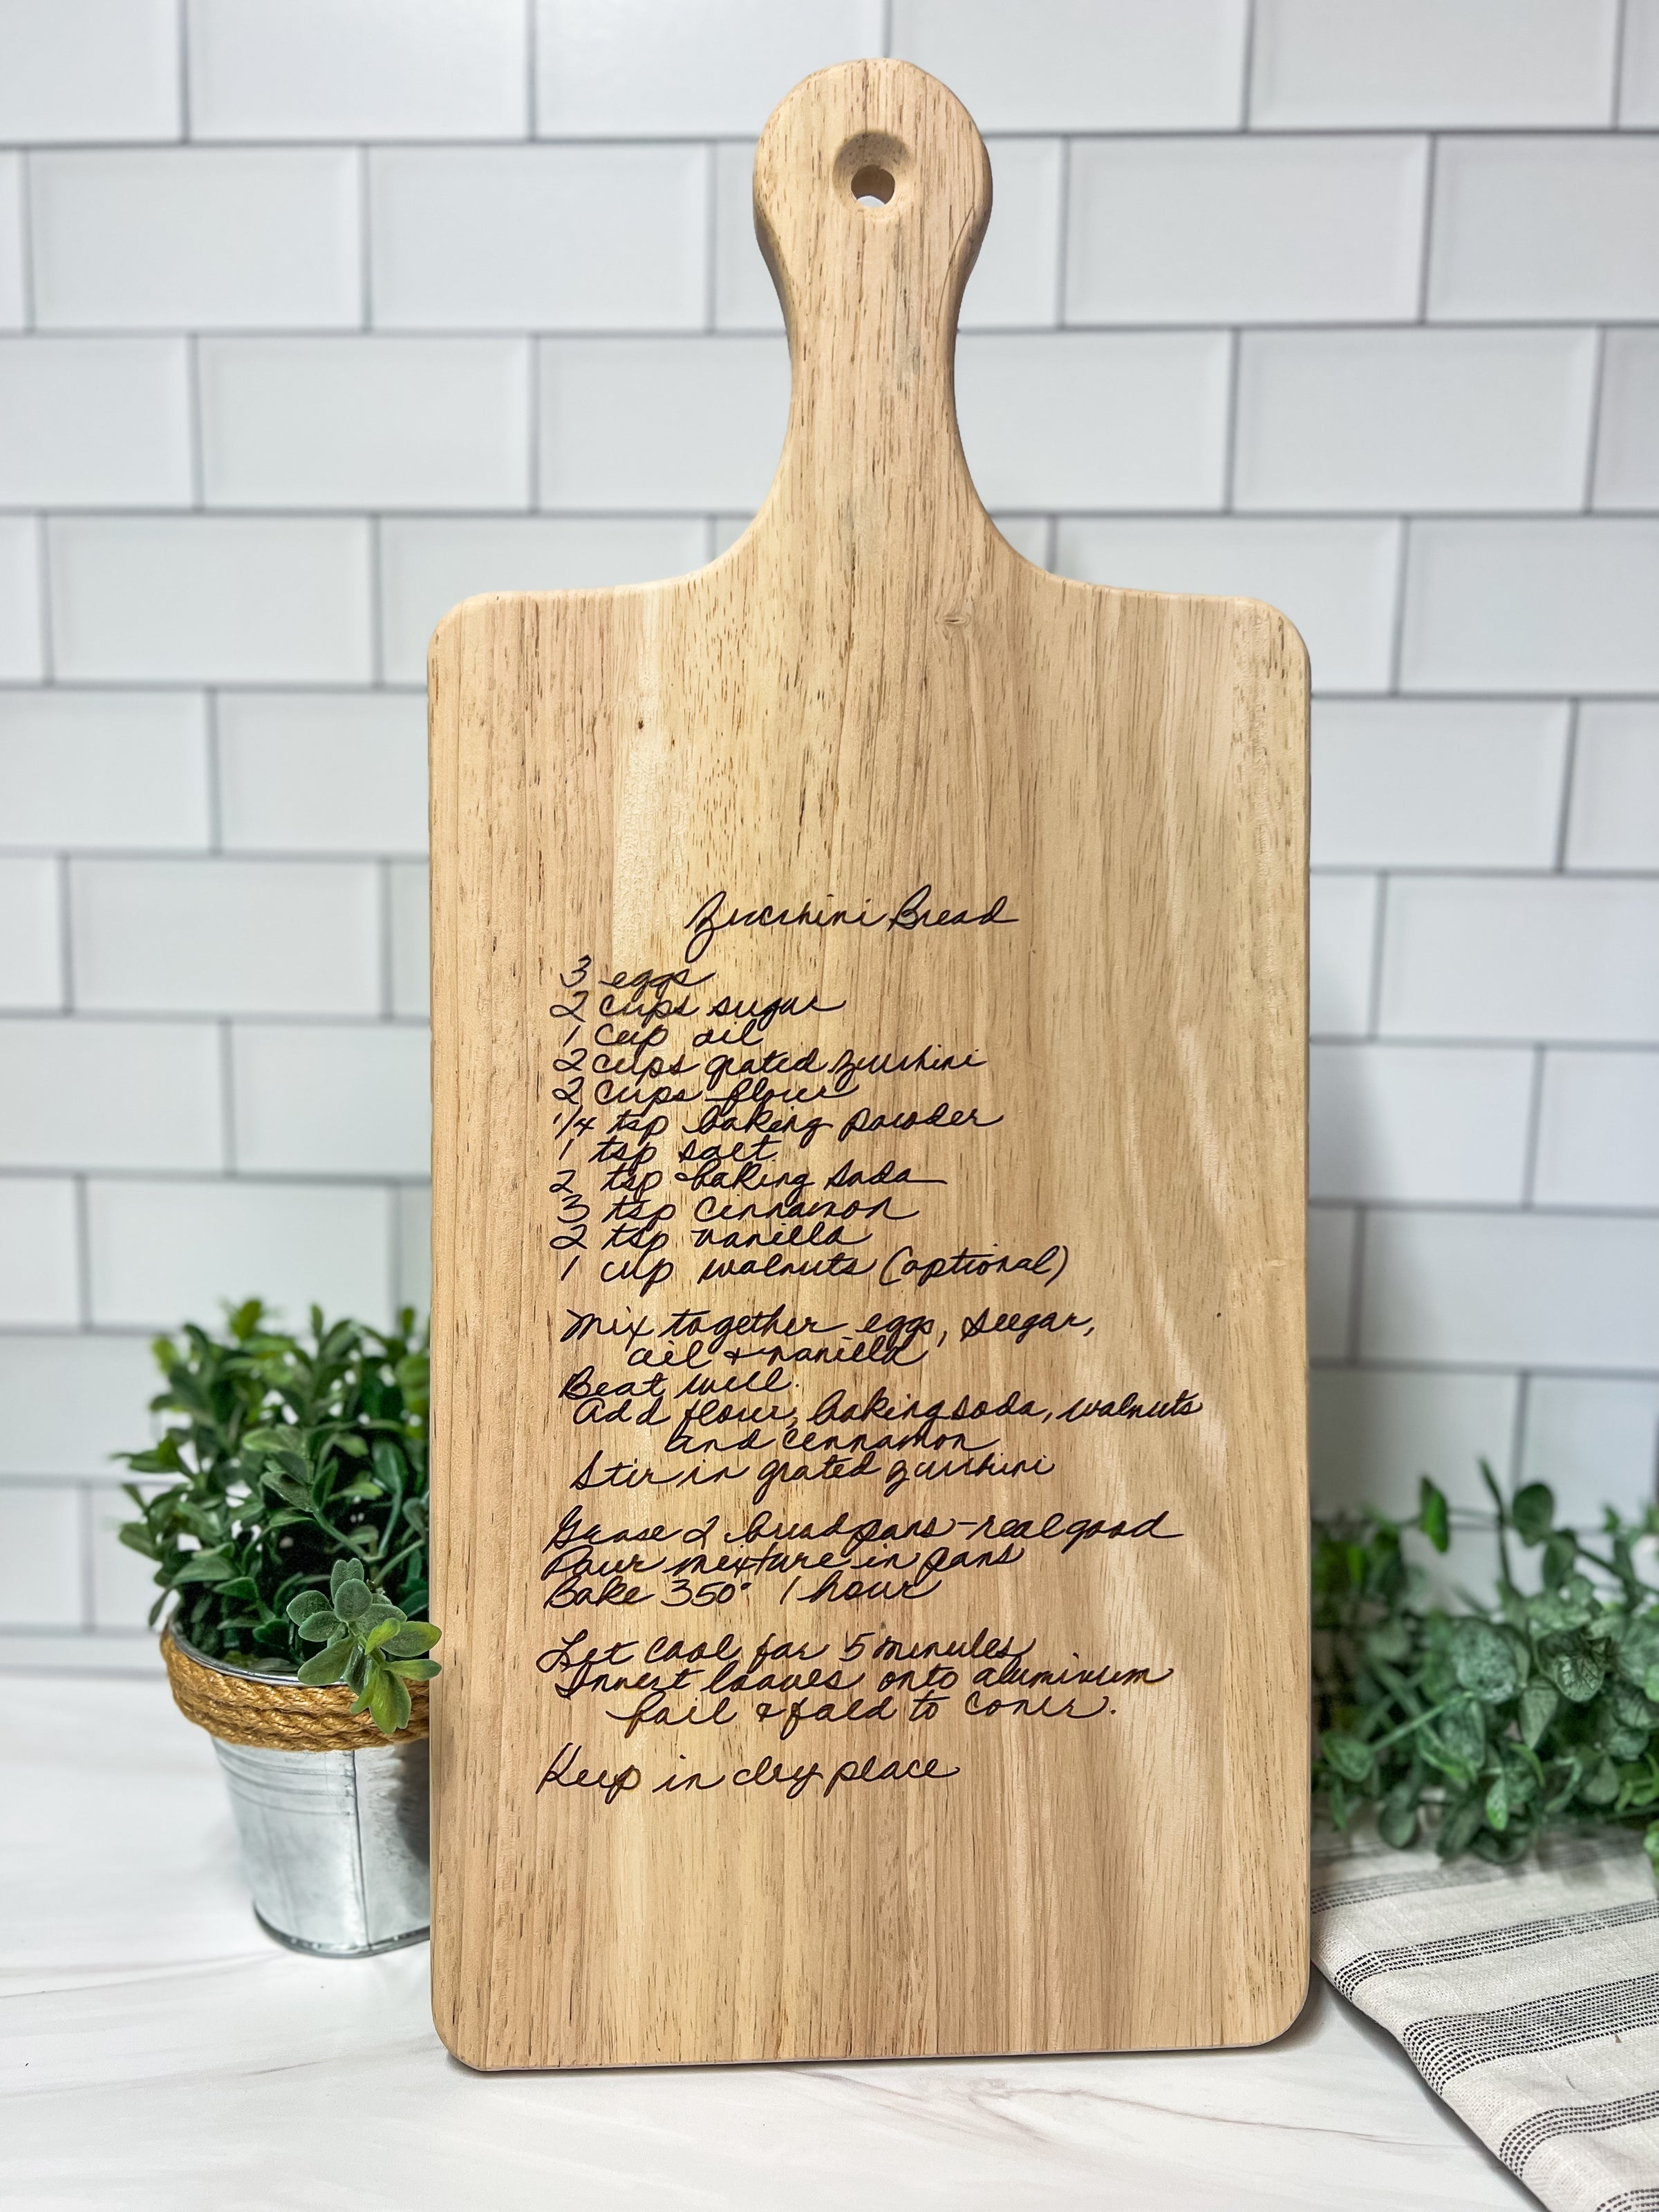 Zucchini Bread
3 eggs
2 cups sugar
1 cup oil
2 cups grated zucchini
2 cups flour
1/4 tsp baking powder
1 tsp salt
2 tsp baking soda
3 tsp cinnamon
2 tsp vanilla
1 cup walnuts (optional)
Mix together eggs, sugar,
oil & vanilla
Beat well.
Add flour, baking soda, walnuts
and cinnamon
Stir in grated zucchini
Grease 2 bread pans - real good
Pour mixture in pans
Bake 350° 1 hour
Let cool for 5 minutes
Invert loaves onto aluminum
foil & fold to cover.
Keep in dry place